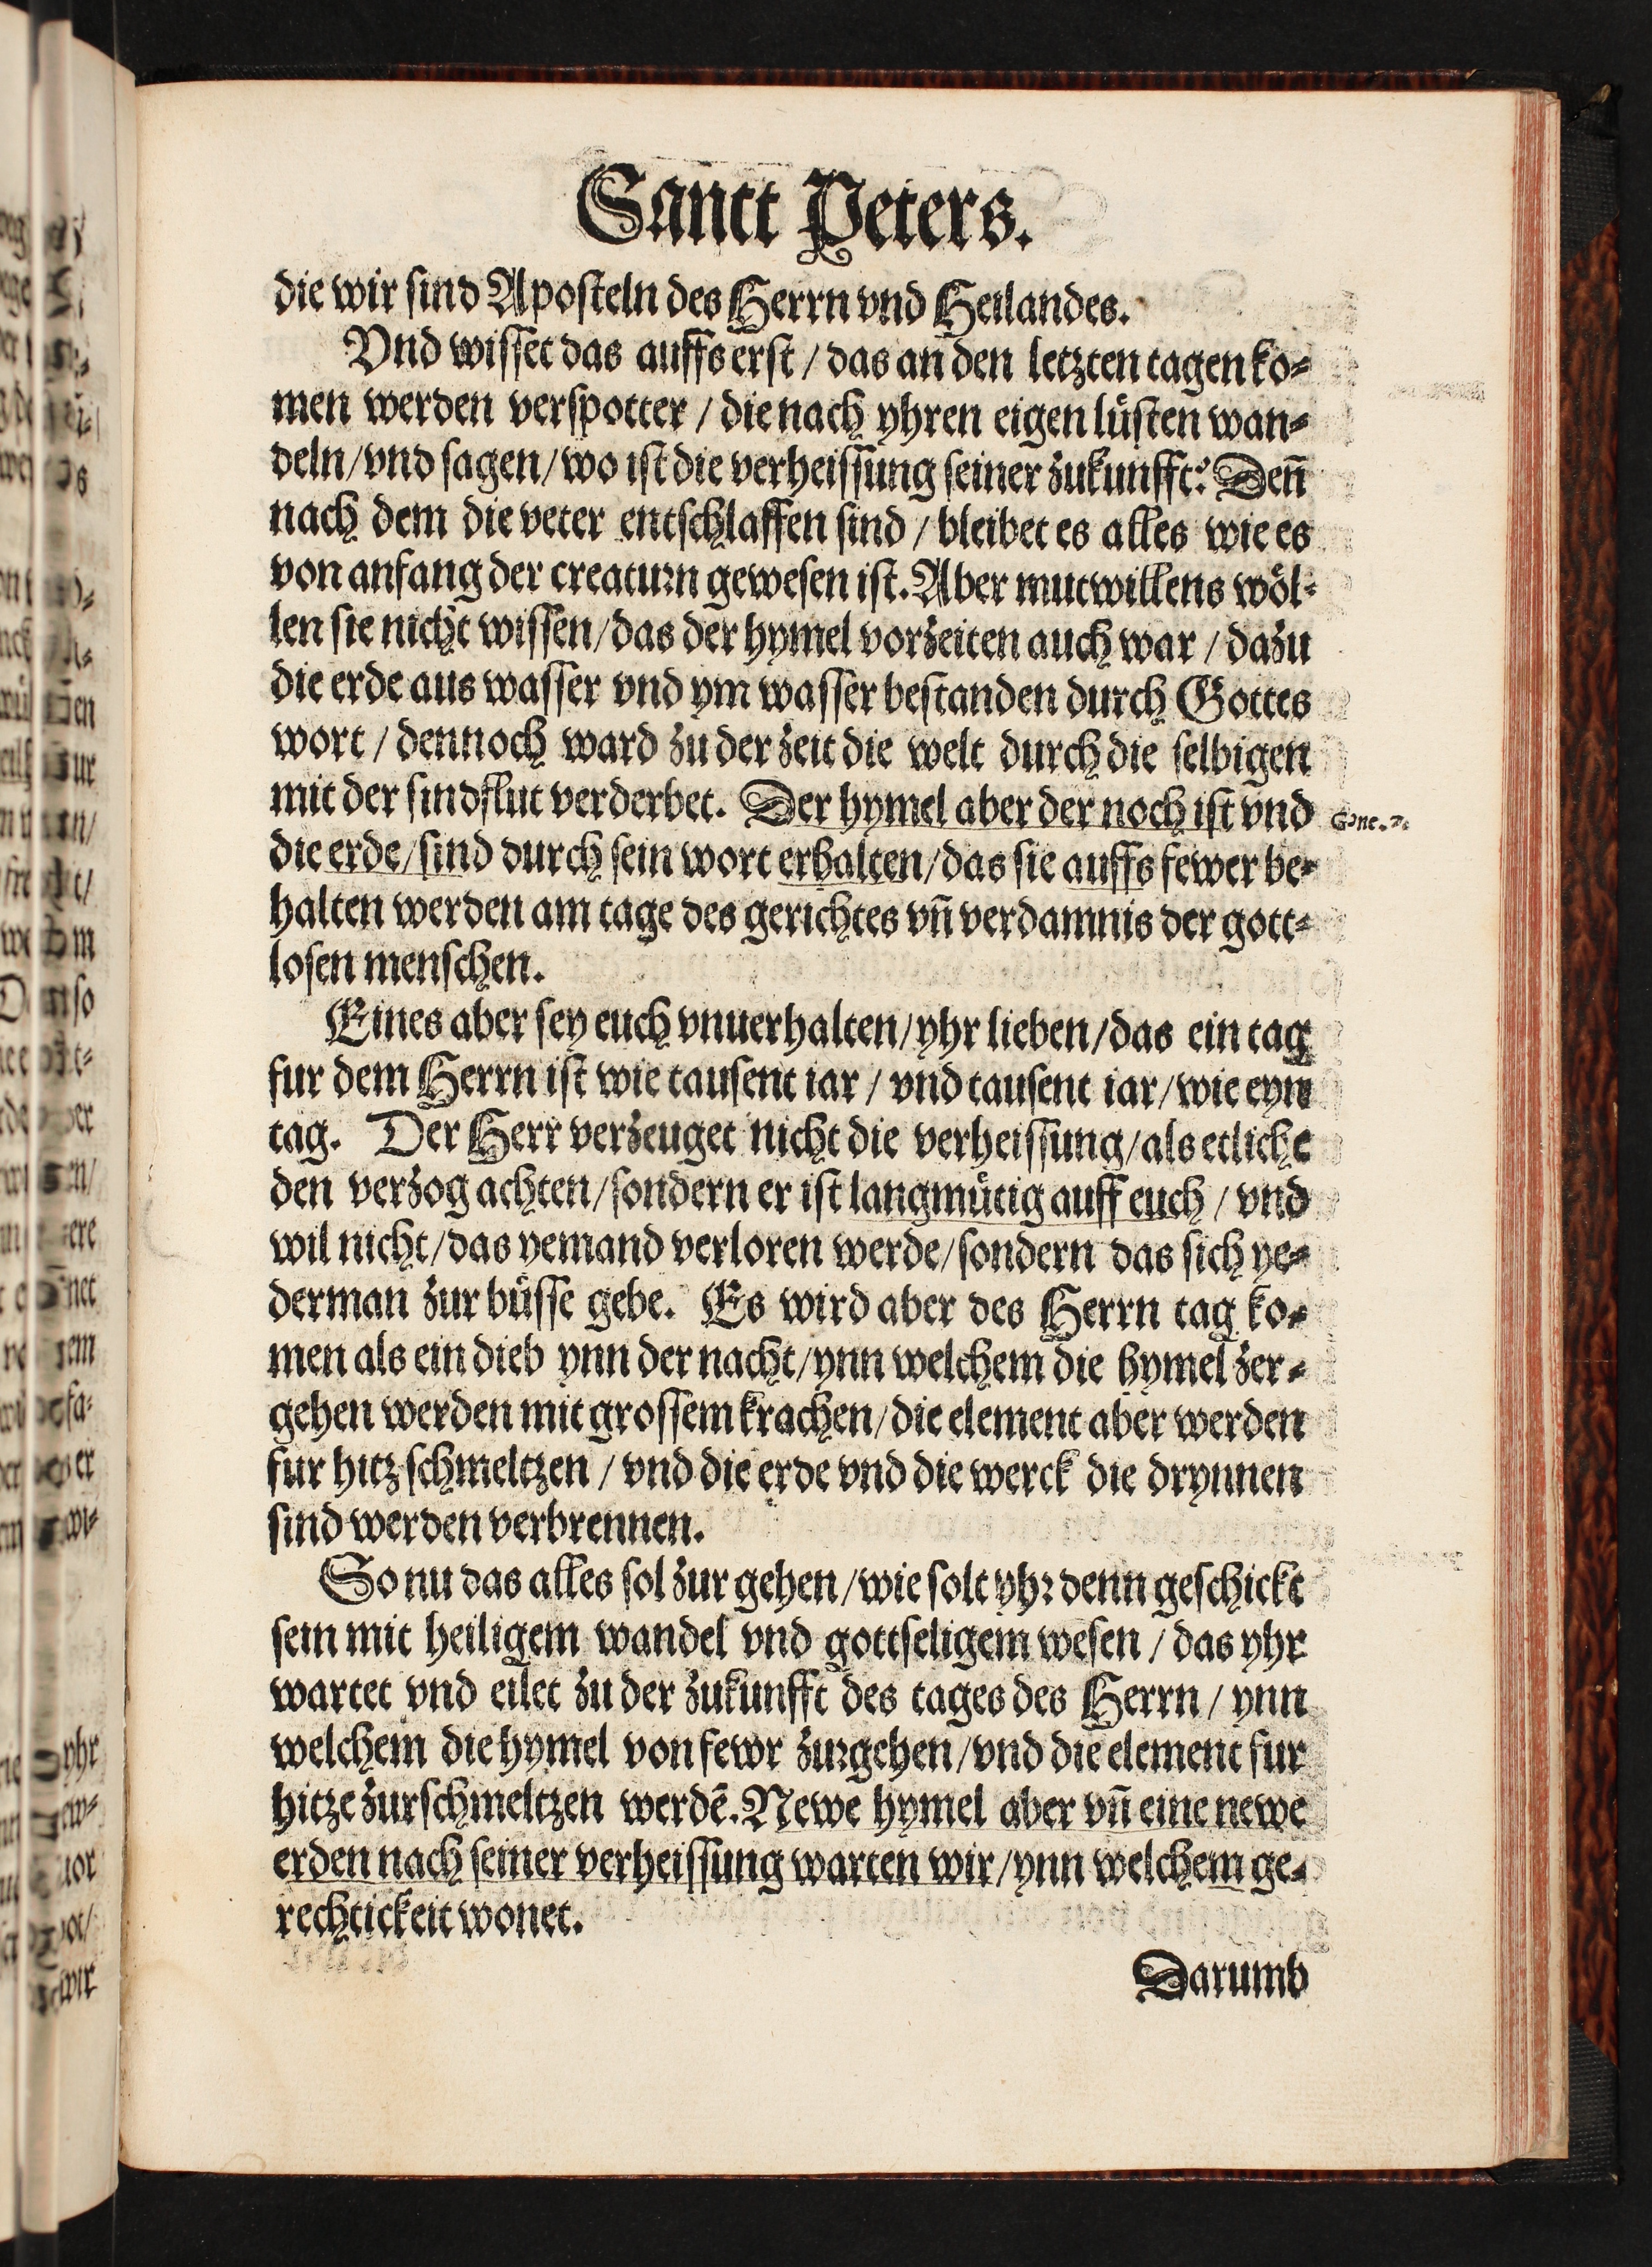 Sanct Peters.
die wir sind Aposteln des Herrn vnd Heilandes.
Vnd wisset das auffs erst / das an den letzten tagen ko⸗
men werden verspotter / die nach yhren eigen lüsten wan⸗
deln/vnd sagen/wo ist die verheissung seiner zukunfft? Deñ
nach dem die veter entschlaffen sind / bleibet es alles wie es
von anfang der creaturn gewesen ist. Aber mutwillens wöl⸗
len sie nicht wissen/das der hymel vorzeiten auch war / dazu
die erde aus wasser vnd ym wasser bestanden durch Gottes
wort / dennoch ward zu der zeit die welt durch die selbigen
mit der sindflut verderbet. Der hymel aber der noch ist vnd
Gene.7.
die erde/sind durch sein wort erhalten/das sie auffs fewer be⸗
halten werden am tage des gerichtes vñ verdamnis der gott⸗
losen menschen.
Eines aber sey euch vnuerhalten/yhr lieben/das ein tag
fur dem Herrn ist wie tausent iar / vnd tausent iar/wie eyn
tag. Der Herr verzeuget nicht die verheissung/als etliche
den verzog achten/sondern er ist langmütig auff euch / vnd
wil nicht/das yemand verloren werde/sondern das sich ye⸗
derman zur büsse gebe. Es wird aber des Herrn tag ko⸗
men als ein dieb ynn der nacht/ynn welchem die hymel zer⸗
gehen werden mit grossem krachen/die element aber werden
fur hitz schmeltzen / vnd die erde vnd die werck die drynnen
sind werden verbrennen.
So nu das alles sol zur gehen/wie solt yhr denn geschickt
sein mit heiligem wandel vnd gottseligem wesen / das yhr
wartet vnd eilet zu der zukunfft des tages des Herrn / ynn
welchem die hymel von fewr zurgehen/vnd die element fur
hitze zurschmeltzen werdē. Newe hymel aber vñ eine newe
erden nach seiner verheissung warten wir/ynn welchem ge⸗
rechtickeit wonet.
Darumb